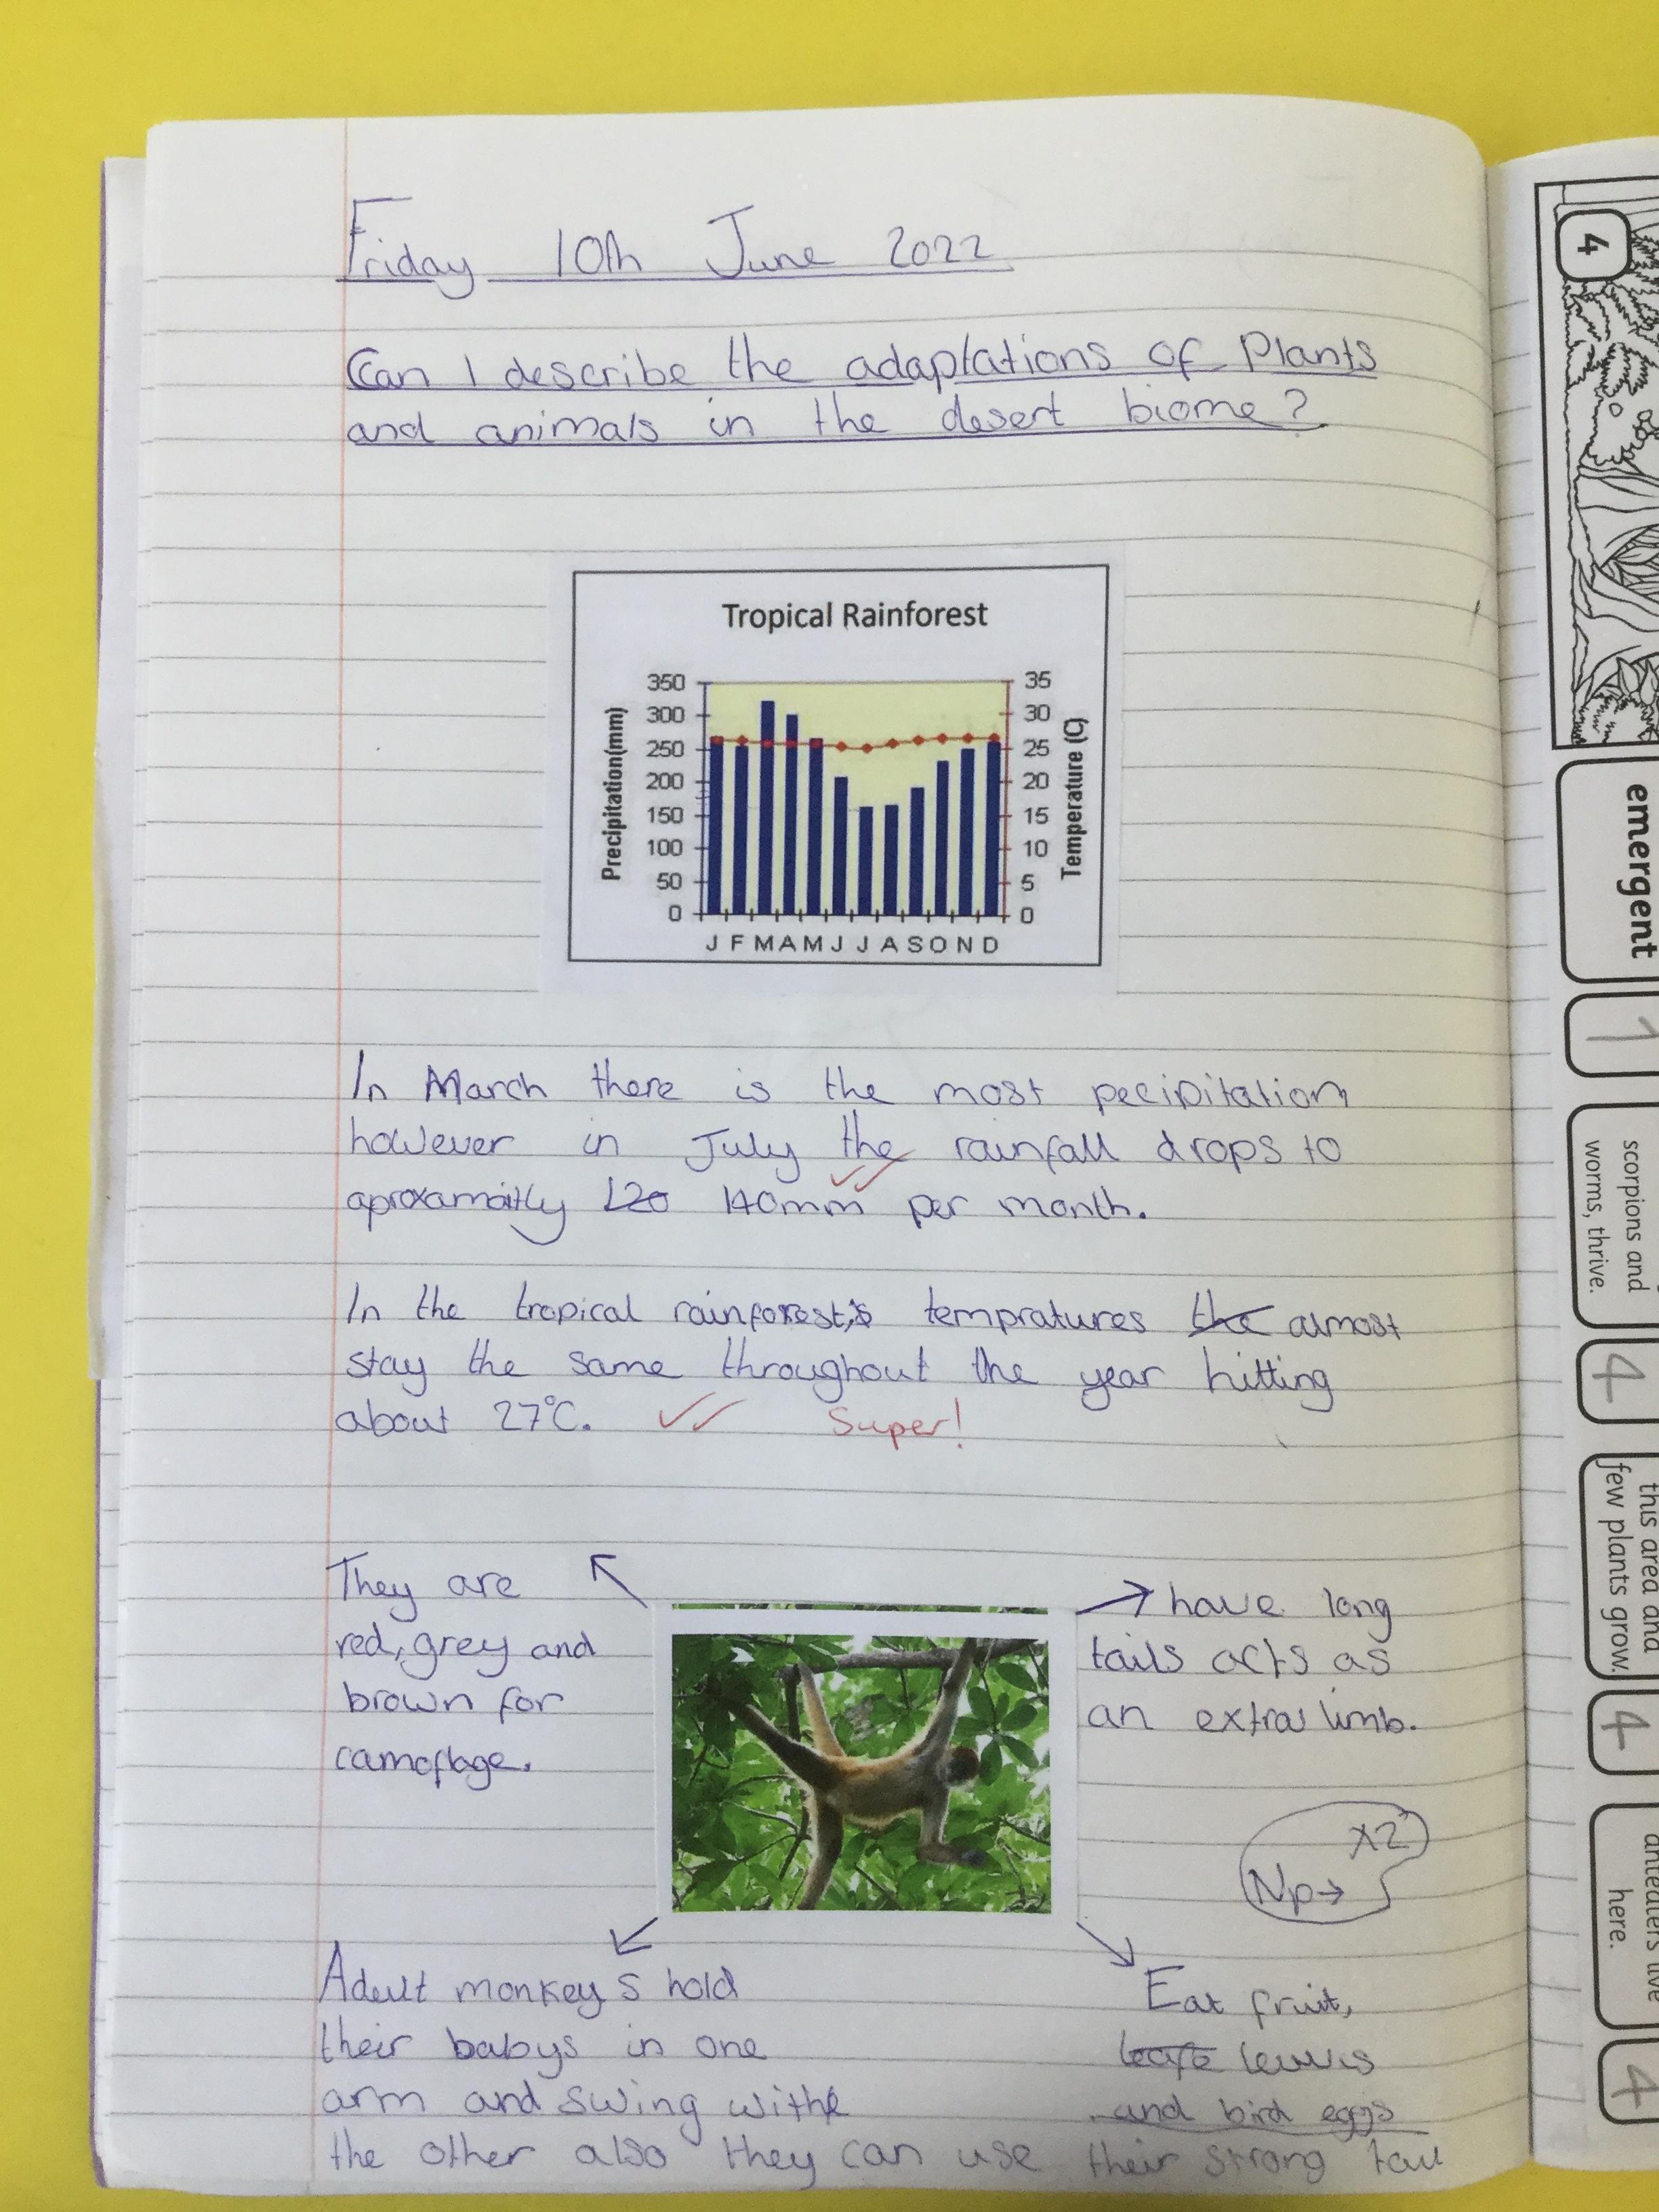 Friday 10th June 2022
Can I describe the adaptations of Plants
and animals in the desert biome?
Tropical Rainforest
Precipitation(mm)
350
300
250
200
150
100
50
0
35
30
25
20
15
10
5
0
Temperature (C)
J F M A M J J A S O N D
In March there is the most pecipitation
however in July the rainfall drops to
aproxamaitly 120 140mm per month.
In the tropical rainforest,s tempratures the almost
stay the same throughout the year hitting
about 27°C. Super!
They are
red, grey and
brown for
camoflage.
have long
tails acts as
an extra limb.
x2
Np→
Adult monkeys hold
their babys in one
arm and swing withe
the other also they can use their strong tail
Eat fruit,
leafe leavis
and bird eggs
4
emergent
1
scorpions and
worms, thrive.
4
this area and
few plants grow.
4
anteaters live
here.
4